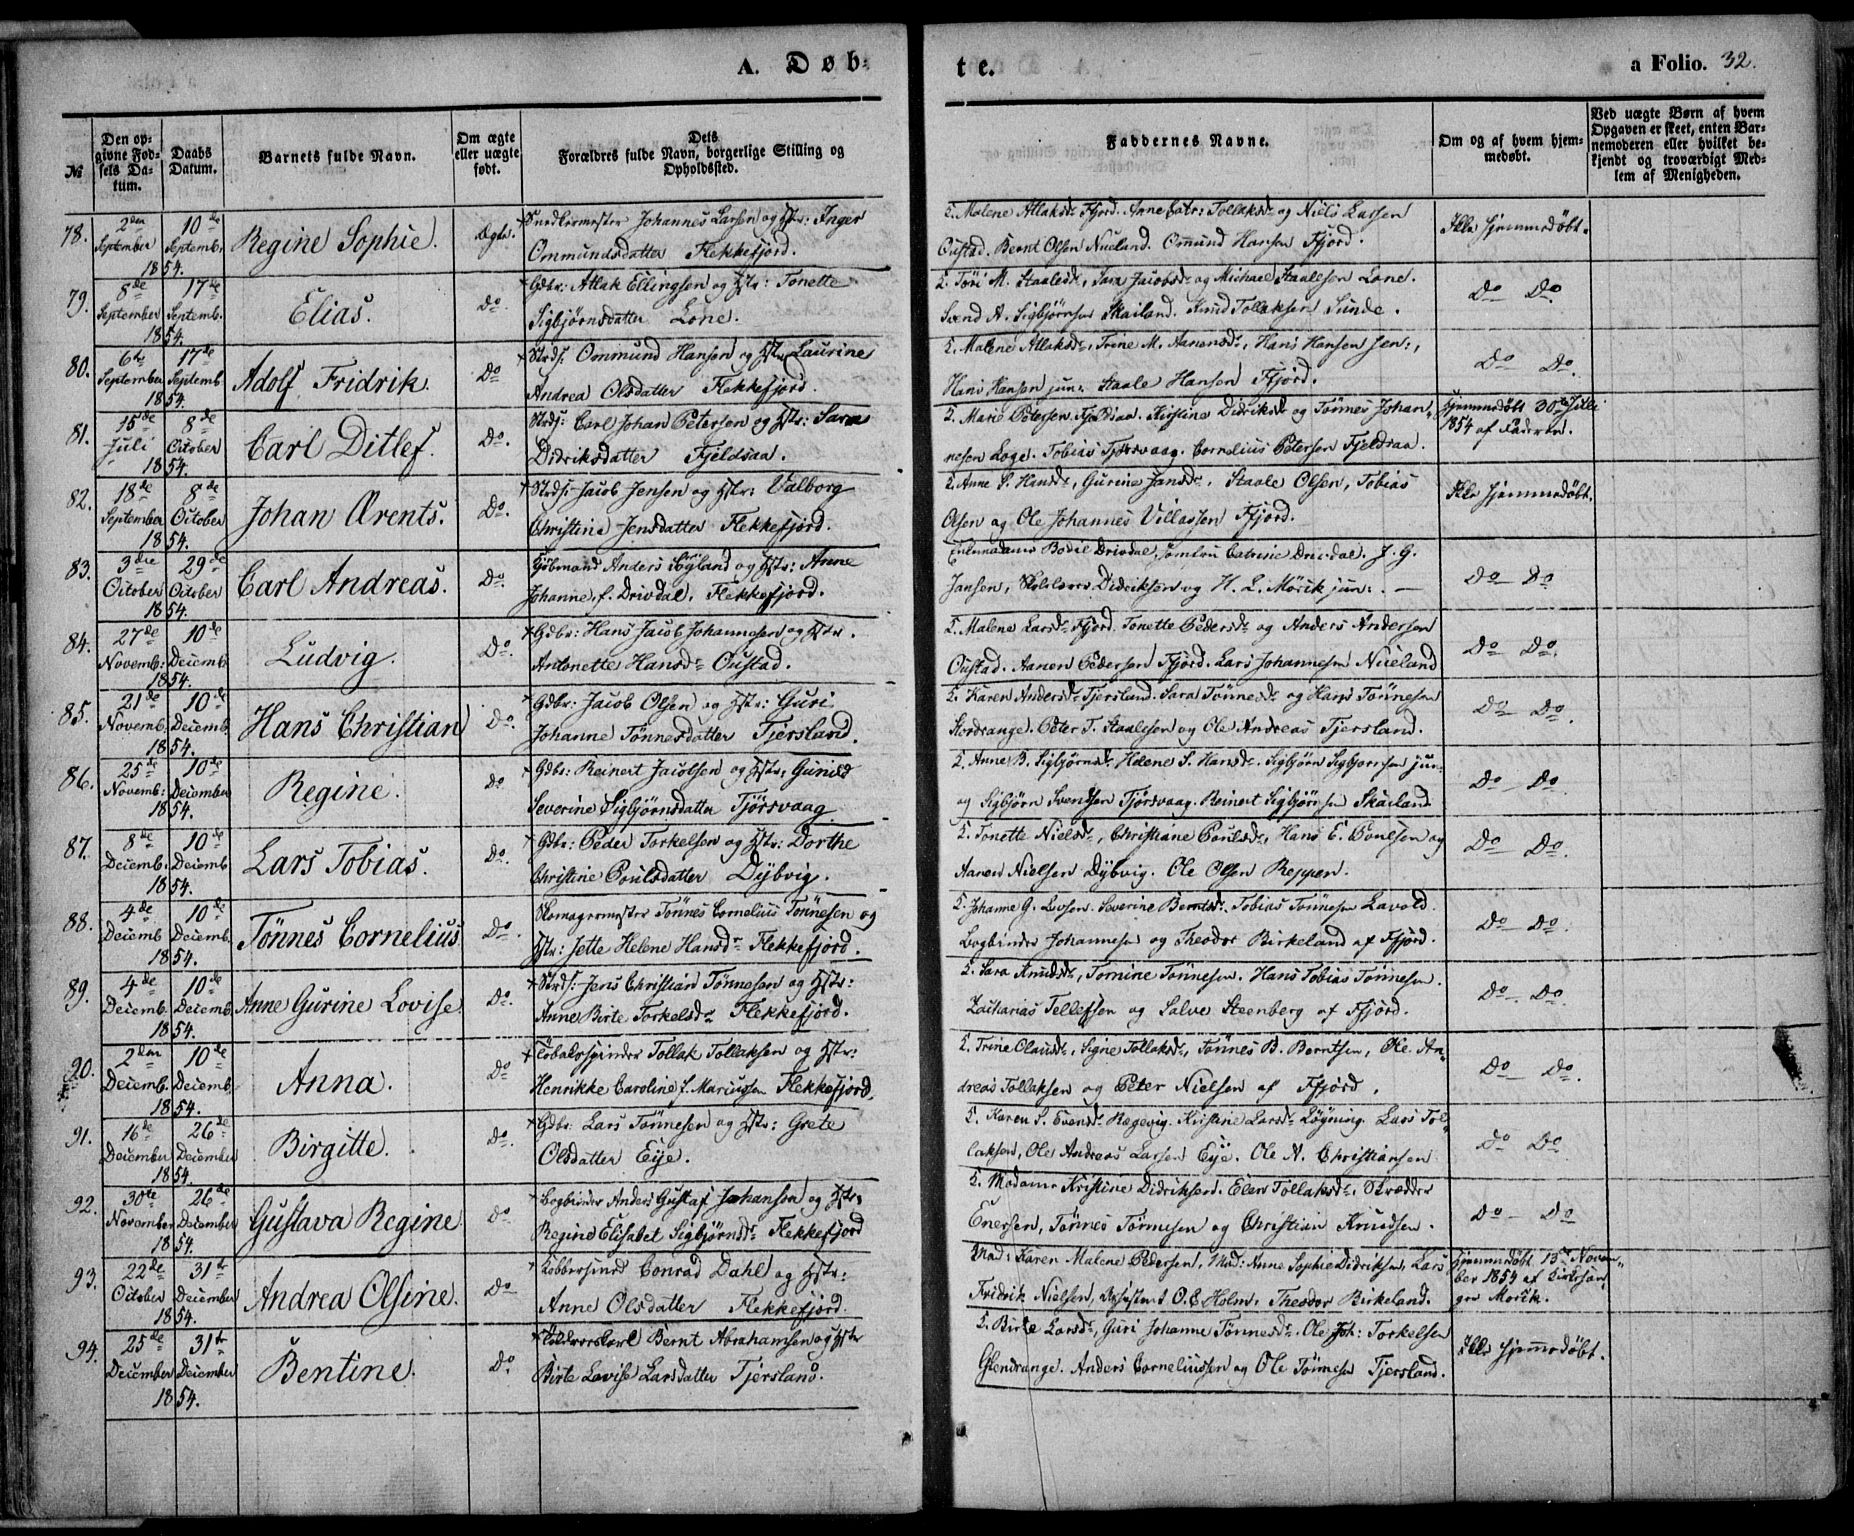 A. Døb-
te.
a Folio. 32.
№
Den op-
givne Fød-
sels Da-
tum.
Daabs
Datum.
Barnets fulde Navn.
Om ægte
eller uægte
født.
Dets
Forældres fulde Navn, borgerlige Stilling og
Opholdssted.
Faddernes Navne.
Om og af hvem hjem-
medøbt.
Ved uægte Børn af hvem
Opgaven er skeet, enten Bar-
nemoderen eller hvilket be-
kjendt og troværdigt Med-
lem af Menigheden.
78. 2den September 1854. 10de Septemb. Regine Sophie. Ægte. Snedkermester Johannes Larsen og Hstr: Inger
Ommundsdatter Flekkefjord.
Malene Atlaksdr Fjord. Anne Catr: Tollaksdr og Niels Lassen
Oustad. Bernt Olsen Nueland. Ommund Hansen Fjord.
Ikke hjemmedøbt.
79. 8de September 1854. 17de Septemb. Elias. Do Gdbr: Atlak Ellingsen og Hstr: Tonette
Sigbjørnsdatter Lone.
Töri M. Staalesdr, Sara Jacobsdr og Michael Staalesen Lone.
Svend A. Sigbjørnsen Skailand. Knud Tollaksen Sunde.
Do Do
80. 6te September 1854. 17de Septemb. Adolf Fridrik. Do Strds: Ommund Hansen og Hstr Laurine
Andrea Olsdatter Flekkefjord.
Malene Atlaksdr, Trine M. Aanensdr, Hans Hansen sen:,
Hans Hansen jun: Staale Hansen Ffjord.
Do Do.
81. 15de Juli 1854. 8de October Carl Ditlef. Do. Strds: Carl Johan Petersen og Hstr: Sara
Didriksdatter Fjeldsaa.
Marie Petersen Fjeldsaa. Kirstine Didriksdr og Tönnes Johan-
nesen Loge. Tobias Tjørsvaag. Cornelius Petersen Fjeldsaa.
Hjemmedøbt 30te Juli
1854 af Faderen.
82. 18de September 1854. 8de October Johan Ærents. Do. Strds: Jacob Jensen og Hstr: Valborg
Christine Jensdatter Flekkefjord.
Anne S. Hansdr, Gurine Jansdr. Staale Olsen, Tobias
Olsen og Ole Johannes Villassen Ffjord.
Ikke hjemmedøbt.
83. 3die October 1854. 29de October Carl Andreas. Do. Kjøbmand Anders Egeland og Hstr: Anne
Johanne f. Drivdal, Flekkefjord.
Bodil Drivdal, Jomfru Catrine Drivdal. J. G.
Jansen, Skolelærer Didriksen og H. L. Mörik jun:. —
Do Do
84. 27de Novemb: 1854. 10de Decemb. Ludvig. Do. Gdbr: Hans Jacob Johannesen og Hstr.
Antonette Hansdr Oustad.
Malene Larsdr Fjord. Tonette Pedersdr og Anders Andersen
Oustad. Aanen Pedersen Fjord. Lars Johannesen Nueland
Do Do.
85. 21de Novemb. 1854. 10de Decemb. Hans Christian Do. Gdbr: Jacob Olsen og Hstr: Guri
Johanne Tönnesdatter Tjersland.
Karen Andersdr Tjersland. Sara Tönnesdr og Hans Tönnesen
Stordrange. Peter T. Staalesen og Ole Andreas Tjersland.
Do Do.
86. 25de Novemb: 1854. 10de December Regine. Do Gdbr: Reinert Jacobsen og Hstr, Gunild
Severine Sigbjörnsdatter Tjörsvaag
Anne B. Sigbjörnsdr. Helene S. Hansdr. Sigbjörn Sigbjornsen jun:
og Sigbjörn Svendsen Tjörsvaag. Reinert Sigbjörnsen Skailand
Do Do.
87. 8de Decemb. 1854. 10de Decemb Lars Tobias. Do. Gdbr: Peder Torkelsen og Hstr: Dorthe
Christine Poulsdatter Dybvig.
Tonette Nielsdr, Christiane Poulsdr, Hans E. Poulsen og
Aanen Nielsen Dybvig. Ole Olsen Reppen.
Do Do.
88. 4de Decemb 1854. 10de Decemb. Tønnes Cornelius Do. Skomagermester Tönnes Cornelius Tönnesen og
Hstr: Jette Helene Hansdr Flekkefjord.
Johanne G. Severine Berntsdr. Tobias Tönnesen Lavold.
Bogbinder Johannesen og Theodor Birkeland af Ffjord.
Do Do.
89. 4de Decemb. 1854. 10de Decemb. Anne Gurine Lovise. Do. Strds: Jens Christian Tönnesen og Hstr:
Anne Birte Torkelsdr Flekkefjord.
Sara Knudsdr, Tomine Tönnesen. Hans Tobias Tönnesen.
Zacharias Tellefsen og Salve Steenberg af Ffjord.
Do Do.
90. 2den Decemb. 1854. 10de Decemb. Anna. Do. Tobakspinder Tollak Tollaksen og Hstr:
Henrikke Caroline f. Marcussen Flekkefjord.
Trine Olausdr, Signe Tollaksdr, Tönnes B. Berntsen, Ole An-
dreas Tollaksen og Peter Nielsen af Ffjord.
Do Do.
91. 16de December 1854. 26de December Birgitte. Do. Gdbr. Lars Tönnesen og Hstr: Grete
Olsdatter Eije.
Karen S. Evensdr Rægevig. Kirstine Larsdr Løgning. Lars Tol-
laksen, Ole Andreas Larsen Eije. Ole N. Christiansen
Do Do.
92. 30te November 1854. 26de December Gustava Regine Do. Bogbinder Anders Gustaf Johansen og Hstr.
Regine Elisabet Sigbjörnsdr Flekkefjord
Madame Kristine Didriksen. Elen Tollaksdr. Skrædder
Enersen, Tönnes Tönnesen og Christian Knudsen.
Do Do
93. 22de October 1854. 31te December Andrea Olsine. Do Kobbersmed Conrad Dahl og Hstr:
Anne Olsdatter Flekkefjord.
Mad: Karen Malene Pedersen, Mad: Anne Sophie Didriksen, Lars
Fridrik Nielsen, O. E. Holm. Theodor Birkeland.
Hjemmedøbt 13de Novem-
ber 1854 af Kirkesan-
ger Mörik.
94. 25de December 1854. 31te December Bentine. Do. Bernt Abrahamsen og Hstr
Birte Lovise Larsdatter Tjersland.
Birte Larsdr, Guri Johanne Tönnesdr. Ole Joh: Torkelsen
Glendrange. Anders Corneliussen og Ole Tönnesen Tjersland.
Ikke hjemmedøbt.